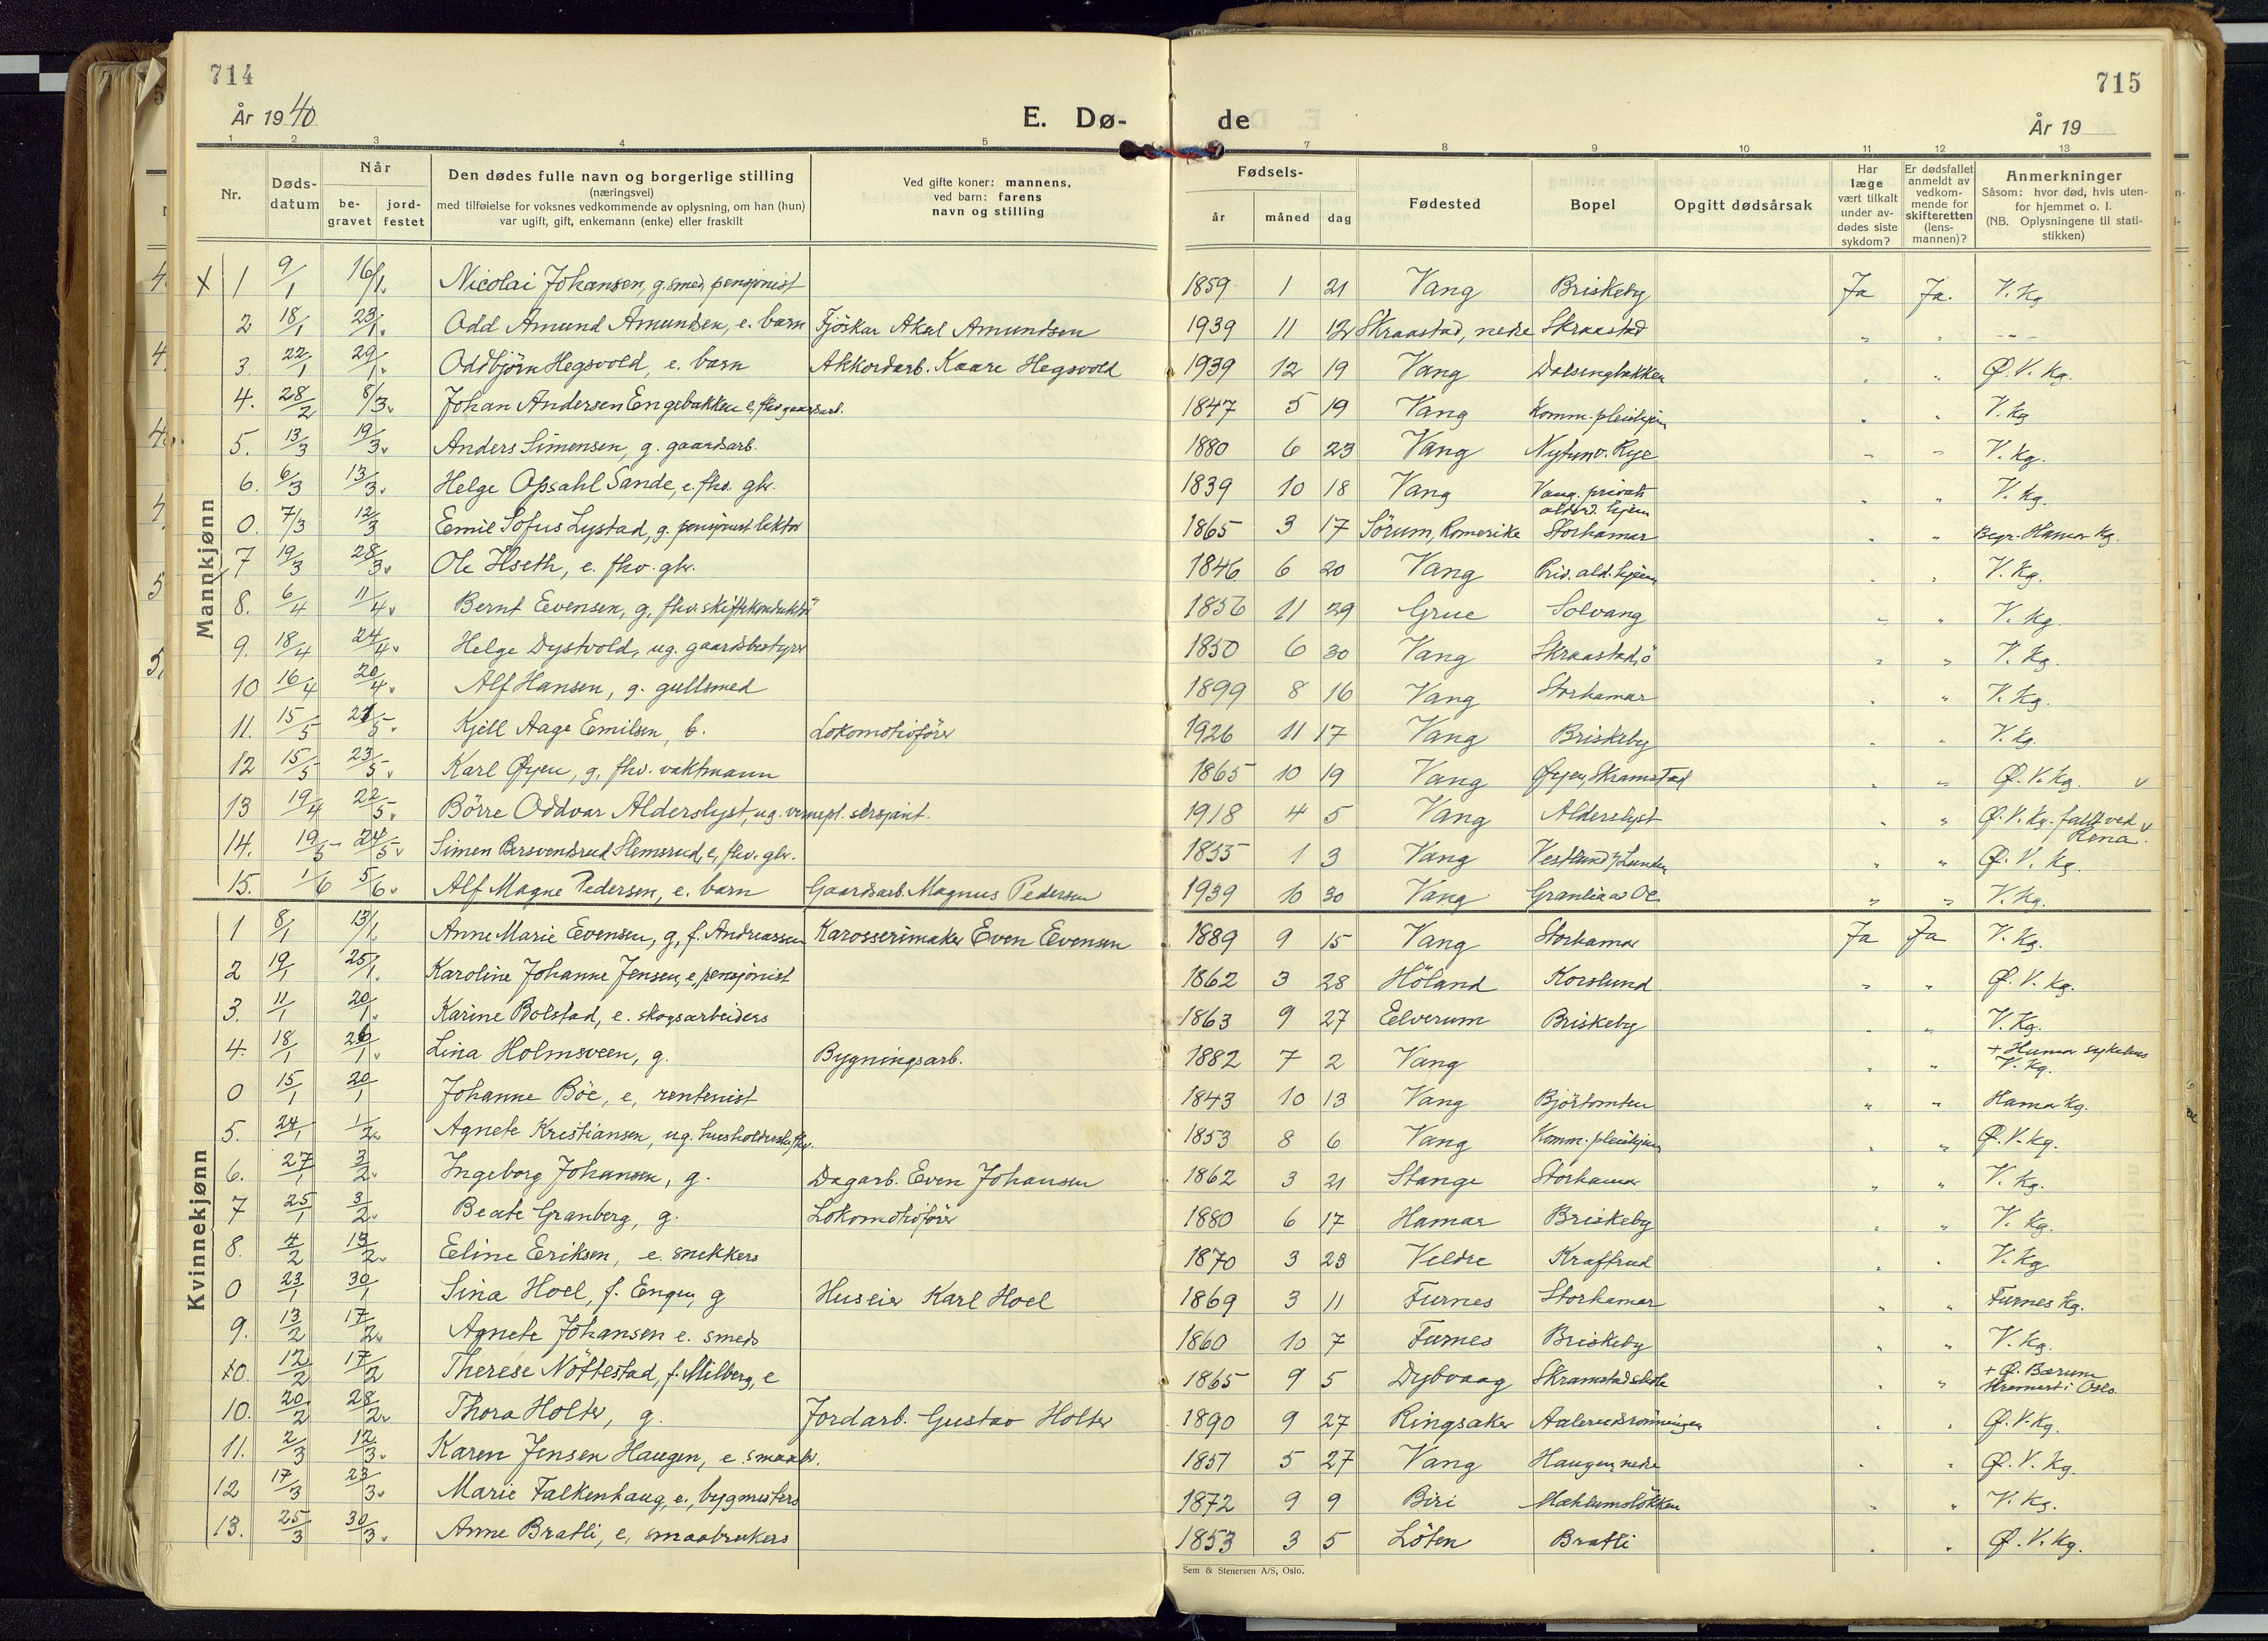 714
715
År 1940
E. Dø-
de
År 19
1 2 3 4 5 7 8 9 10 11 12 13
Nr.
Døds-
datum
Når
be-
gravet
jord-
festet
Den dødes fulle navn og borgerlige stilling
(næringsvei)
med tilføielse for voksnes vedkommende av oplysning, om han (hun)
var ugift, gift, enkemann (enke) eller fraskilt
Ved gifte koner: mannens,
ved barn: farens
navn og stilling
Fødsels-
år måned dag
Fødested
Bopel
Opgitt dødsårsak
Har
læge
vært tilkalt
under av-
dødes siste
sykdom?
Er dødsfallet
anmeldt av
vedkom-
mende for
skifteretten
(lens-
mannen)?
Anmerkninger
Såsom: hvor død, hvis uten-
for hjemmet o. l.
(NB. Oplysningene til stati-
stikken)
Mannkjønn
x 1 9/1 16/1 Nicolai Johansen, g. smed, pensjonist 1859 1 21 Vang Briskeby Ja Ja. V. Kg
2 18/1 23/1 Odd Amund Amundsen, e. barn Fjöskar Aksel Amundsen 1939 11 12 Skraastad, nedre Skraastad " " - - -
3. 22/1 29/1 Oddbjörn Hegsvold, e. barn Akkordarb. Kaare Hegsvold 1939 12 19 Vang Dalsengbakken " " Ø. V. Kg.
4. 28/2 8/3 Johan Andersen Engebakken e, fhv gaardsarb. 1847 5 19 Vang Komm. pleiehjem " " V. Kg
5. 13/3 19/3 Anders Simensen, g. gaardsarb. 1880 6 23 Vang Nytun v. Rye " " V. Kg.
6. 6/3 13/3 Helge Opsahl Sande, e. fhv. gbr. 1839 10 18 Vang Vang. privat alderd. hjem " " V. Kg.
0. 7/3 12/3 Emil Sofus Lystad, g. pensjonert lektor 1865 3 17 Sörum, Romerike Storhamar " " Begr. Hamar Kg.
7 19/3 28/3 Ole Hseth, e. fhv. gbr. 1846 6 20 Vang Priv. ald. hjem " " V. Kg.
8. 6/4 11/4 Bernt Evensen, g, fhv. skiftekonduktör 1856 11 29 Grue Solvang " " V. Kg.
9. 18/4 24/4 Helge Dystvold, ug. gaardsbestyrer 1850 6 30 Vang Skraastad, ö " " V. Kg.
10 16/4 20/4 Alf Hansen, g. gullsmed 1899 8 16 Vang Storhamar " " V. Kg.
11. 15/5 21/5 Kjell Aage Emilsen, b. Lokomotivförer 1926 11 17 Vang Briskeby " " V. Kg.
12 15/5 23/5 Karl Øyen, g, fhv. vaktmann 1865 10 19 Vang Øyen, Skramstad " " Ø. V. Kg. v
13 19/4 22/5 Börre Oddvar Alderslyst, ug. vernepl. sersjant. 1918 4 5 Vang Alderslyst " " Ø. V. Kg. falt ved v
Rena.
14. 19/5 24/5 Simen Bersvendsrud Slemsrud, e, fhv. gbr. 1855 1 3 Vang Vestlund v/ Lunden " " Ø. V. Kg.
15. 1/6 5/6 Alf Magne Pedersen, e. barn Gaardsarb. Magnus Pedersen 1939 10 30 Vang Granlia av " " V. Kg.
Kvinnekjønn
1 8/1 13/1 Anne Marie Evensen, g, f. Andreassen Karosserimaker Even Evensen 1889 9 15 Vang Storhamar Ja Ja V. Kg.
2 19/1 25/1 Karoline Johanne Jensen, e, pensjonist 1862 3 28 Höland Korslund " " Ø. V. Kg.
3. 11/1 20/1 Karine Bolstad, e. skogsarbeiders 1863 9 27 Elverum Briskeby " " V. Kg.
4. 18/1 26/1 Lina Holmsveen, g. Bygningsarb. 1882 7 2 Vang " " + Hamar sykehus
V. Kg.
0 15/1 20/1 Johanne Böe, e, rentenist 1843 10 13 Vang Björtomten " " Hamar Kg.
5. 24/1 1/2 Agnete Kristiansen, ug. husholderske, fhv. 1853 8 6 Vang Komm. pleiehjem " " Ø. V. Kg.
6. 27/1 3/2 Ingeborg Johansen, g. Dagarb. Even Johansen 1862 3 21 Stange Storhamar " " V. Kg.
7 25/1 3/2 Beate Granberg, g. Lokomotivförer 1880 6 17 Hamar Briskeby " " V. Kg.
8. 4/2 13/2 Eline Eriksen, e. snekkers 1870 3 23 Veldre Kraftrud " " V. Kg
0 23/1 30/1 Sina Hoel, f. Engen, g Huseier Karl Hoel 1869 3 11 Furnes Storhamar " " Furnes Kg.
9. 13/2 17/2 Agnete Johansen e. smeds 1860 10 7 Furnes Briskeby " " V. Kg.
x0. 12/2 17/2 Therese Nöttestad, f. Milberg, e 1865 9 5 Dybvaag Skramstad skole " " + Ø. Bærum
Kremert i Oslo.
10. 20/2 28/2 Thora Holter, g. Jordarb. Gustav Holter 1890 9 27 Ringsaker Aalerudsrönningen " " Ø. V. Kg.
11. 2/3 12/3 Karen Jensen Haugen, e. smaabr. 1851 5 27 Vang Haugen, nedre " " Ø. V. Kg.
12 17/3 23/3 Marie Falkenhaug, e., bygmesters 1872 9 9 Biri Mæhlumslökken " " V. Kg.
13. 25/3 30/3 Anne Bratli, e, smaabrukers 1853 3 5 Löten Bratli " " Ø. V. Kg.
Sem & Stenersen A/S, Oslo.